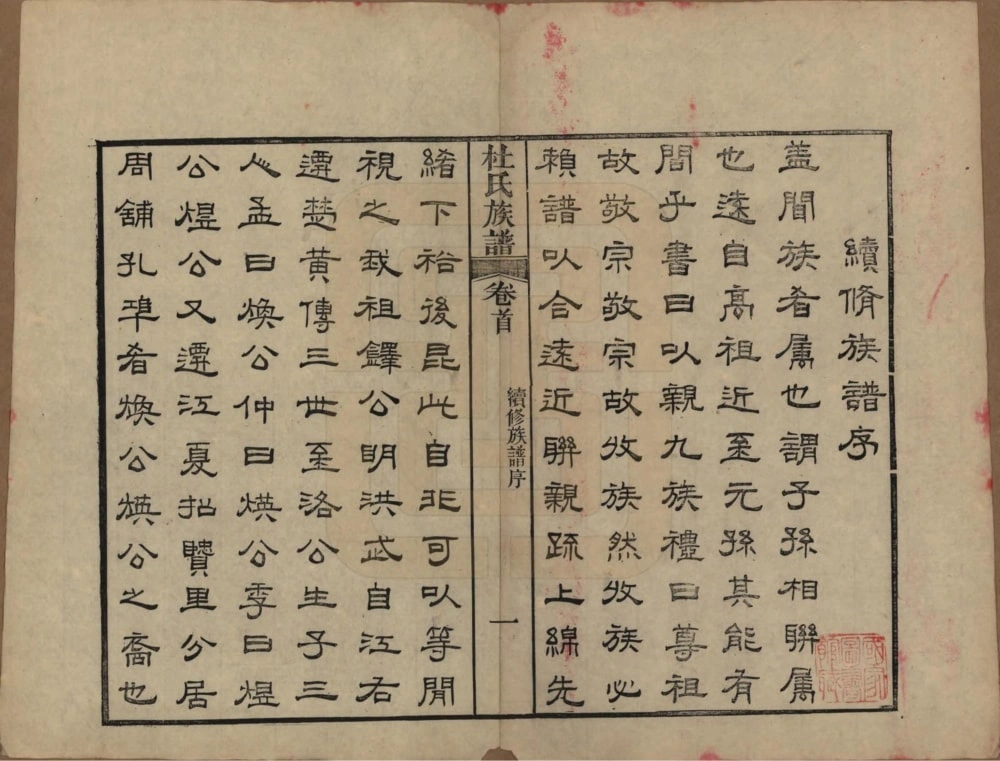 續脩族譜序
盖聞族者属也謂子孫相聯属
也遠自高祖近至元孫其能有
間乎書曰以親九族禮曰尊祖
故敬宗敬宗故收族然收族必
賴譜以合遠近聯親疏上綿先
杜氏族譜 卷首 續修族譜序 一
緒下裕後昆此自非可以等閒
視之我祖鐸公明洪武自江右
遷楚黄傳三世至洛公生子三
人孟曰煥公仲曰煐公季曰煜
公煜公又遷江夏招賢里分居
周舖孔埠者煥公煐公之裔也